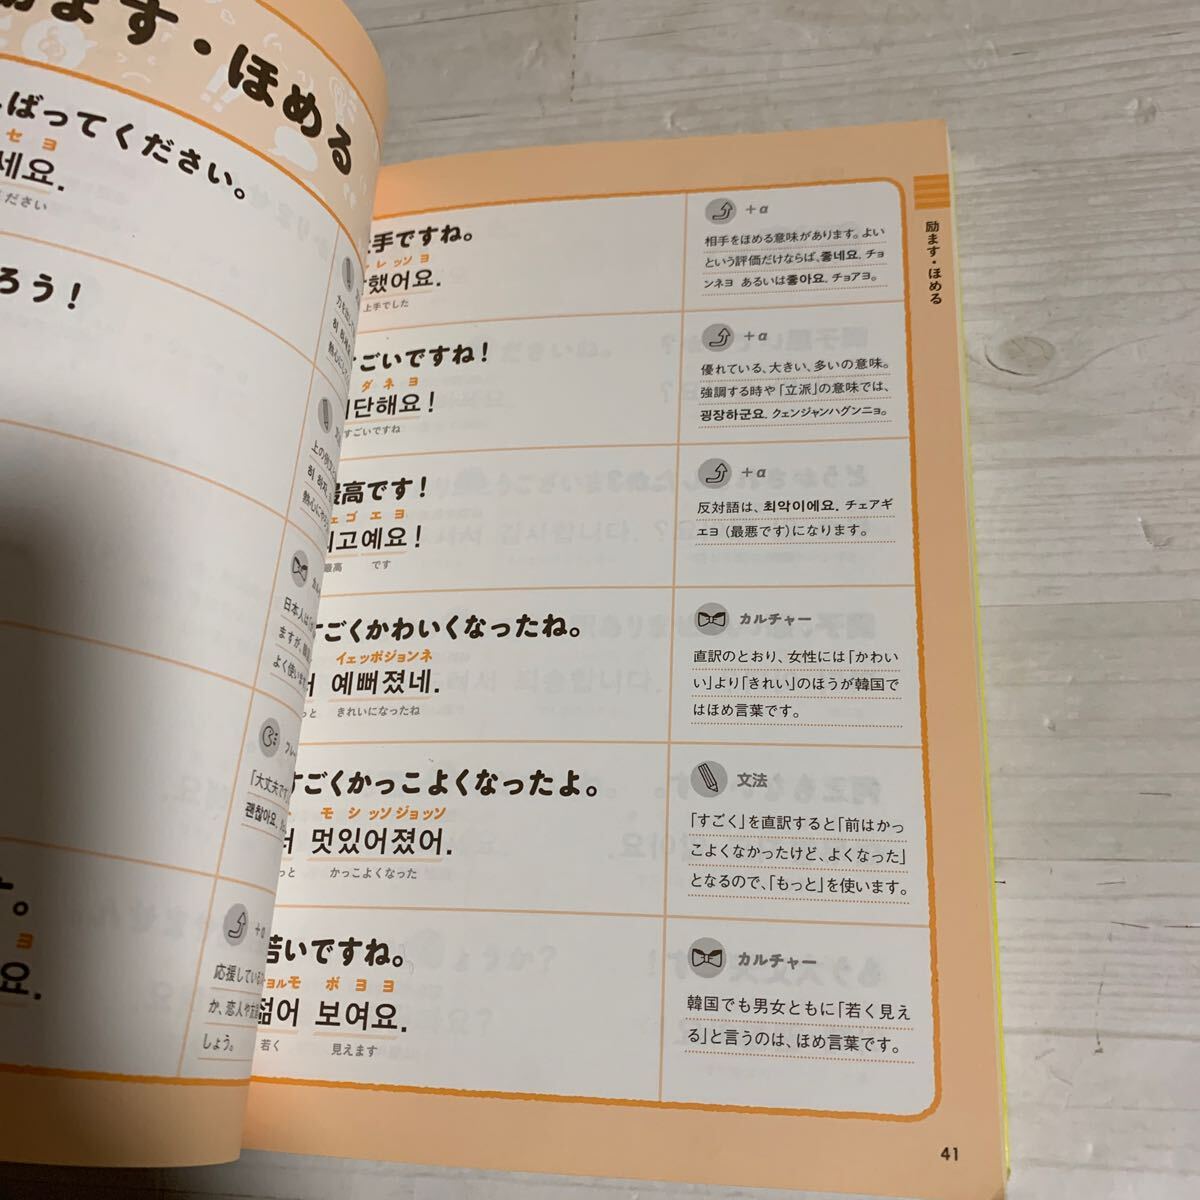 励ます・ほめる
ばってください。
セヨ
세요.
ください
ろう！
す。
ヨ
요.
カルチャー
日本人は
ますが、
よく使います
「大丈夫です」
괜찮아요.
+α
応援している
か、恋人や
しょう。
上手ですね。
レッソヨ
했어요.
上手でした
+α
相手をほめる意味があります。よい
という評価だけならば、좋네요. チョ
ンネヨ あるいは좋아요. チョアヨ。
すごいですね！
ダネヨ
단해요!
すごいですね
+α
優れている、大きい、多いの意味。
強調する時や「立派」の意味では、
굉장하군요. クェンジャンハグンニョ。
最高です！
ェゴエヨ
최고예요!
最高 です
+α
反対語は、최악이에요. チェアギ
エヨ（最悪です）になります。
すごくかわいくなったね。
イェッポジョンネ
예뻐졌네.
っと きれいになったね
カルチャー
直訳のとおり、女性には「かわい
い」より「きれい」のほうが韓国で
はほめ言葉です。
すごくかっこよくなったよ。
モシッソジョッソ
멋있어졌어.
っと かっこよくなった
文法
「すごく」を直訳すると「前はかっ
こよくなかったけど、よくなった」
となるので、「もっと」を使います。
若いですね。
ョルモ ボヨヨ
젊어 보여요.
若く 見えます
カルチャー
韓国でも男女ともに「若く見え
る」と言うのは、ほめ言葉です。
励ます・ほめる
41